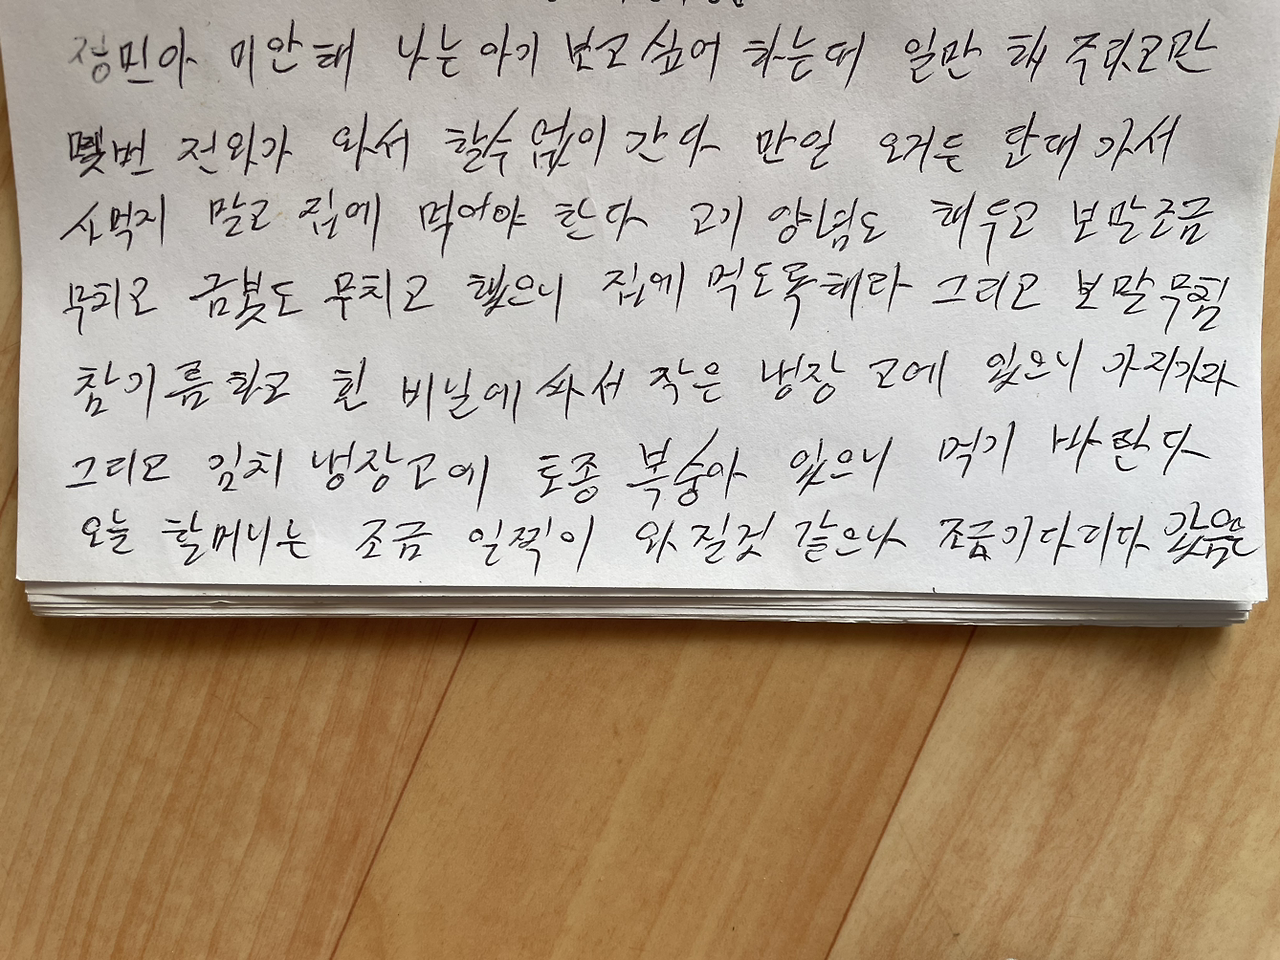 정민아 미안해 나는 아기 보고싶어 하는데 일만 해 주라고만
몇번 전화가 와서 할수없이 간다 만일 오거든 딴데 가서
사먹지 말고 집에 먹어야 한다 고기 양념도 해두고 보말조금
무치고 금봊도 무치고 했으니 집에 먹도록해라 그리고 보말무침
참기름하고 흰 비닐에 싸서 작은 냉장고에 있으니 가지가라
그리고 김치 냉장고에 토종 복숭아 있으니 먹기 바란다
오늘 할머니는 조금 일찍이 와질것 같으나 조금기다리다